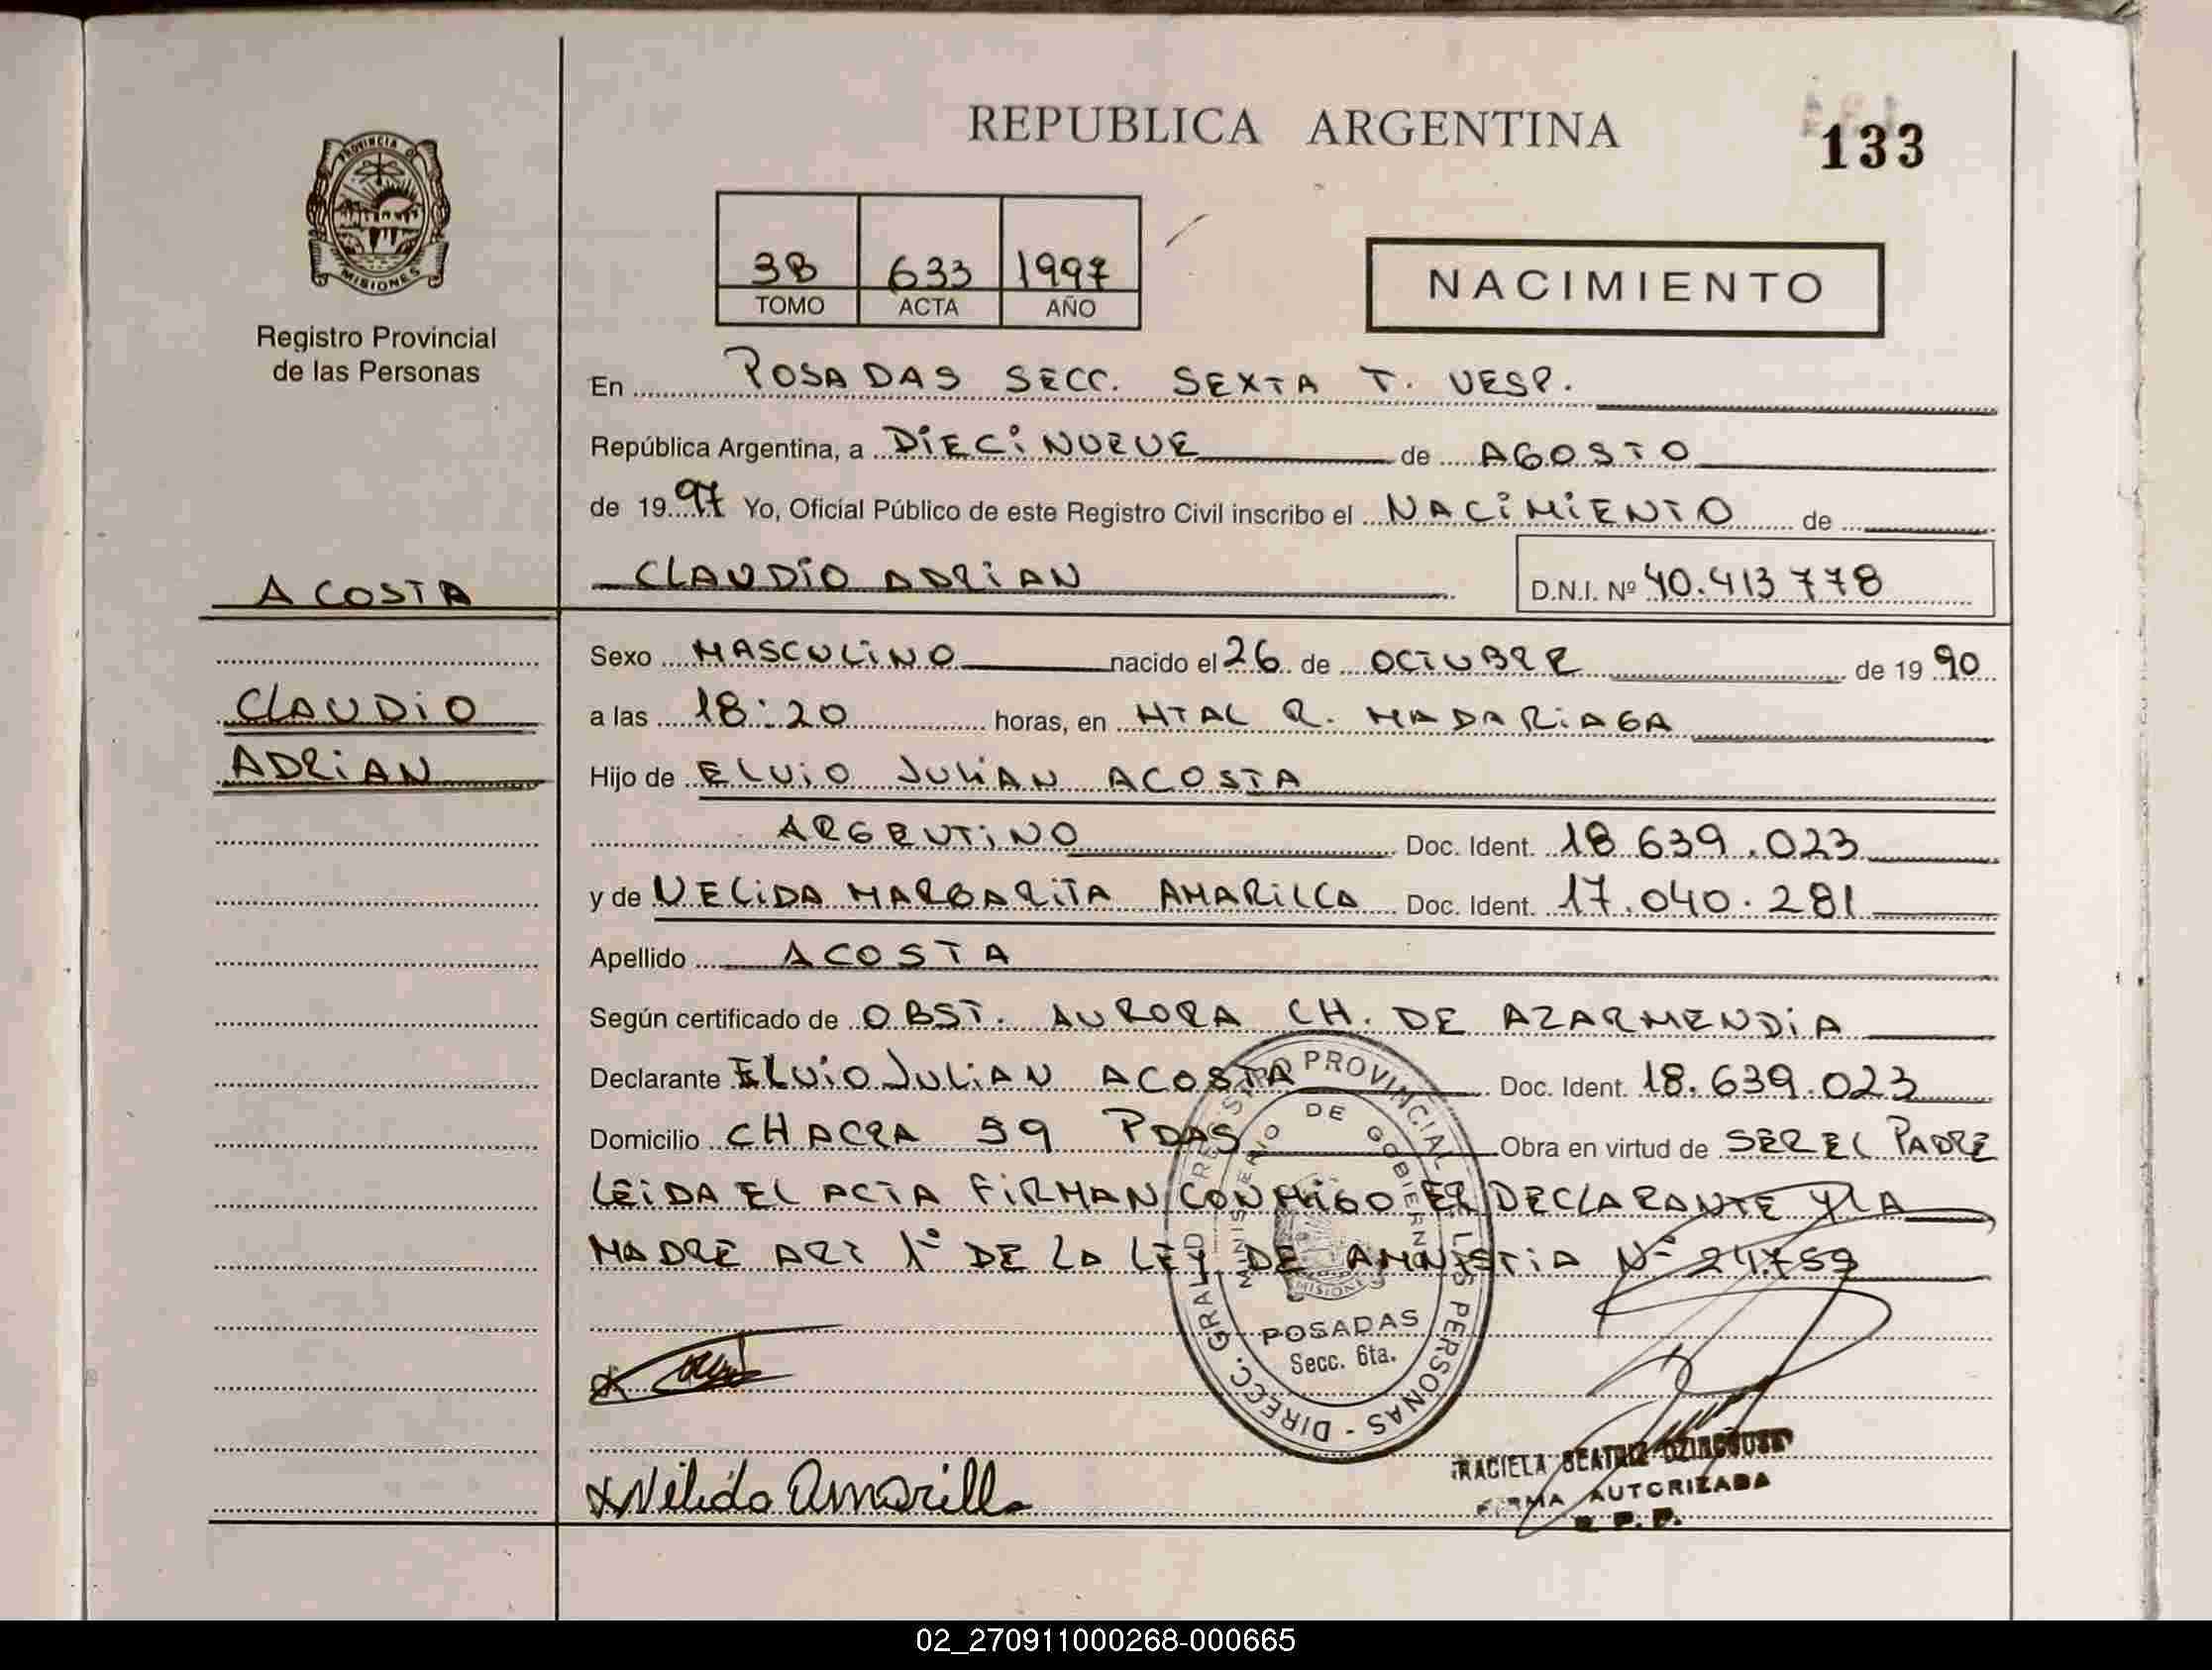 REPUBLICA ARGENTINA
133
PROVINCIA DE
MISIONES
Registro Provincial
de las Personas
3B 633 1997
TOMO ACTA AÑO
NACIMIENTO
En POSADAS SECC. SEXTA T. VESP.
República Argentina, a DIECINUEVE de AGOSTO
de 19 97 Yo, Oficial Público de este Registro Civil inscribo el NACIMIENTO de
ACOSTA
CLAUDIO ADRIAN D.N.I. Nº 40.413778
Sexo MASCULINO nacido el 26 de OCTUBRE de 19 90
CLAUDIO
a las 18:20 horas, en HTAL R. MADARIAGA
ADRIAN
Hijo de ELVIO JULIAN ACOSTA
ARGENTINO Doc. Ident. 18 639.023
y de NELIDA MARGARITA AMARILLA Doc. Ident. 17.040.281
Apellido ACOSTA
Según certificado de OBST. AURORA CH. DE AZARMENDIA
Declarante ELVIO JULIAN ACOSTA Doc. Ident. 18.639.023
Domicilio CHACRA 59 PDAS Obra en virtud de SER EL PADRE
LEIDA EL ACTA FIRMAN CONMIGO EL DECLARANTE Y LA
MADRE ART 1° DE LA LEY DE AMNISTIA Nº 24.759
DIRECC. GRAL. D REGISTRO PROVINCIAL LAS PERSONAS -
MINISTERIO DE GOBIERNO
MISIONES
POSADAS
Secc. 6ta.
x Nélida Amarilla
GRACIELA BEATRIZ
FIRMA AUTORIZADA
R. P. P.
02_270911000268-000665